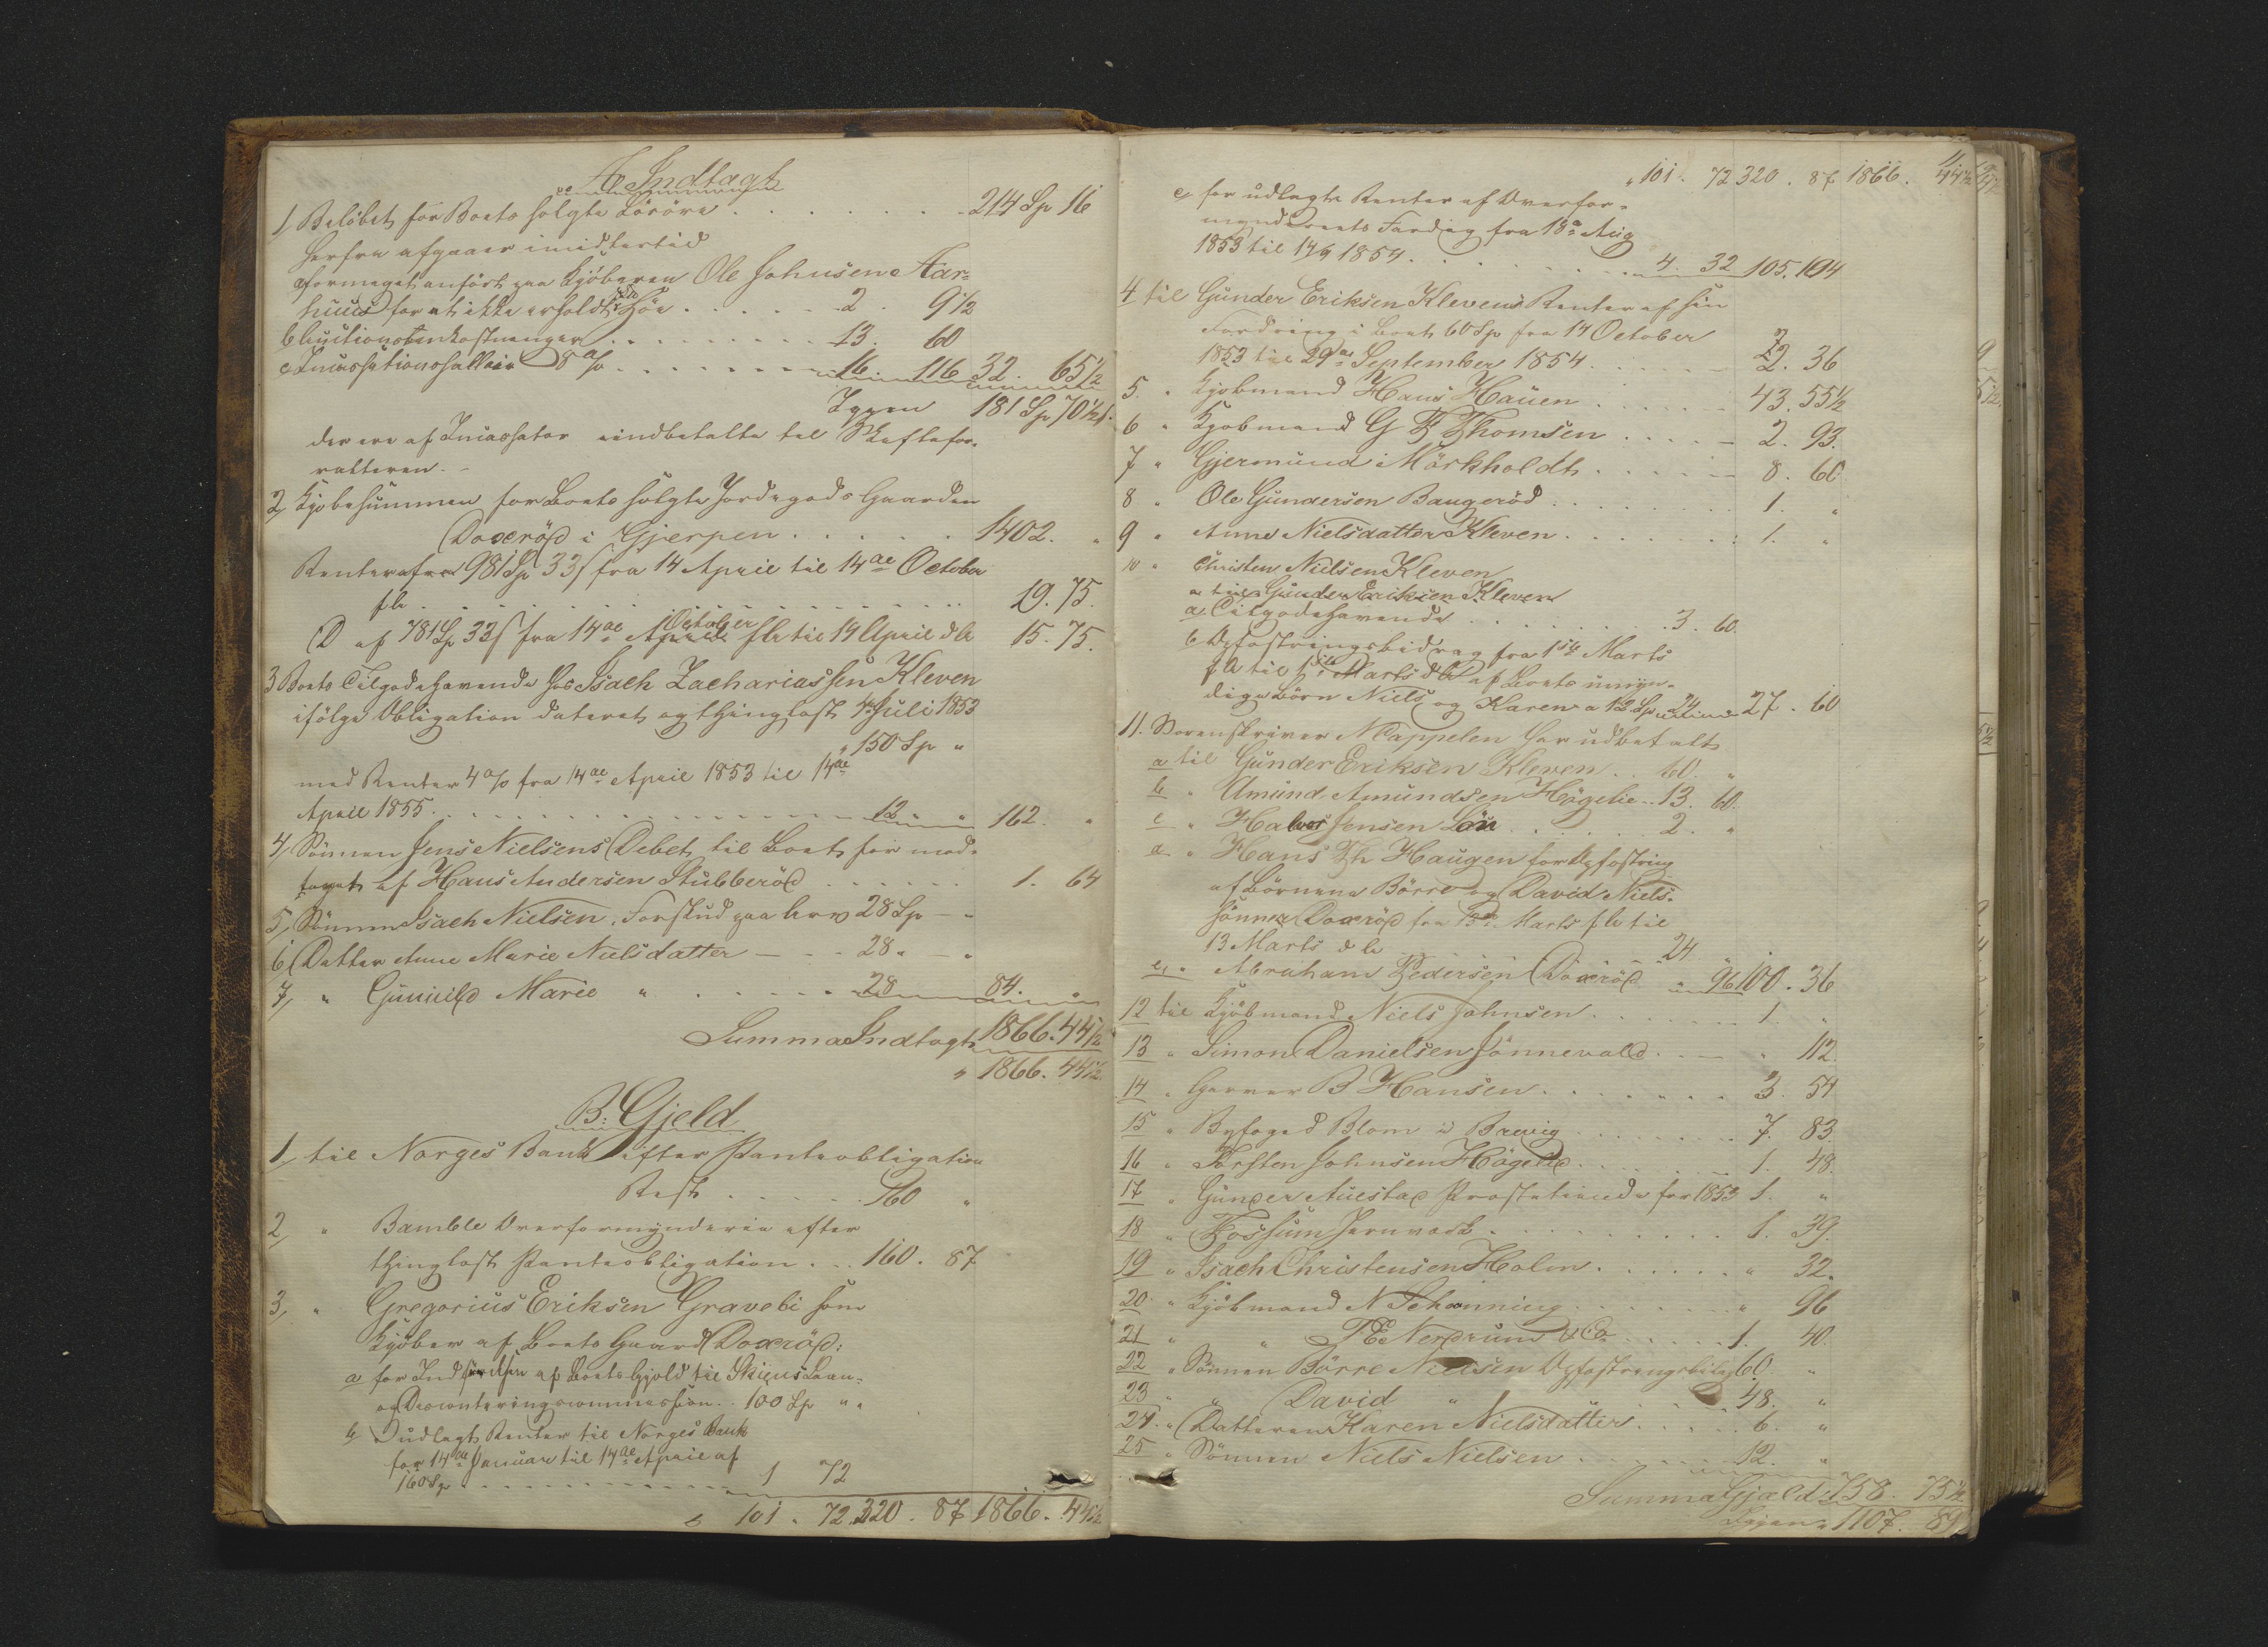 A. Indtægt
1, Beløbet for Boets solgte Løsøre . . . . . . . 214 Sp 16
herfra afgaaer imidlertid
a formeget anført paa Kjøberen Ole Johnsen Aar-
huus for at ikke erholdt Høe . . . . . . 2 . 9 1/2
b Auctionsomkostninger . . . . . . . . . 13. 60
c Incassationssallair 8 % . . . . . . . 16. 116 32. 65 1/2
Igjen 181 Sp 70 1/2 s.
der ere af Incassator indbetalte til Skiftefor-
valteren. -
2, Kjøbesummen for Boets solgte Jordegods Gaarden
Doxrød i Gjerpen . . . . . . 1402. "
Renter af 981 Sp 33 s fra 14 April til 14de October
f A . . . . . . . . . . 19. 75.
D af 781 Sp 33 s fra 14de October f A til 14 April d A 15. 75.
3 Boets Tilgodehavende hos Isach Zachariassen Kleven
ifølge Obligation dateret og thinglæst Juli 1853
" 150 Sp "
med Renter 4 % fra 14de April 1853 til 14de
April 1855 . . . . . . . . . . 12 " 162. "
4, Sønnen Jens Nielsens Debet til Boet for mod-
taget af Hans Andersen Stubberød . . . . . . 1. 64
5, Sønnen Isach Nielsen, Forskud paa Arv 28 Sp - "
6 Datter Anne Marie Nielsdatter - - - 28 " - "
7, " Gunild Marie " . . . . . . 28 84. "
Summa Indtægt 1866. 44 1/2
" 1866. 44 1/2
B. Gjeld
1, til Norges Bank efter Panteobligation
Rest . . . . . 160 "
2, " Bamble Overformynderie efter
thinglæst Panteobligation . . . 160. 87
3, " Gregorius Eriksen Gravebi som
Kjøber af Boets Gaard Doxrød:
a for Indfrielse af Boets Gjeld til Skiens Laane-
og Disconteringscommission . . 100 Sp " "
b Udlagte Renter til Norges Bank
for 14de Januar til 14de April af
160 Sp . . . . . . . . . . 1 72
" 101 . 72. 320 . 87 1866. 44 1/2
" 101. 72 320 . 87 1866. 44 1/2
c for udlagte Renter af Overfor-
mynderiets Fordring fra 18de Aug
1853 til 14/4 1854 . . . . . . . . . 4. 32 105. 104
4 til Gunder Eriksen Kleven Renter af sin
Fordring i Boet 60 Sp fra 14 October
1853 til 29de September 1854 . . . . . 2. 36
5. " Kjøbmand Hans Hauen . . . . . 43. 55 1/2
6 " Kjøbmand G F Thomsen . . . . . 2. 93.
7 " Gjermund Mørkholdt . . . . . 8. 60
8 " Ole Gundersen Baugerød . . . . . . . 1. "
9 " Anne Nielsdatter Kleven . . . . . . . 1. "
10 " Christen Nielsen Kleven
" til Gunder Eriksen Kleven
a Tilgodehavende . . . . . . . . 3. 60
b Opfostringsbidrag fra 1ste Marts
f A til 1ste Marts d A af Boets umyn-
dige Børn Niels og Karen a 12 Sp 24 27. 60
11. Sorenskriver N Cappelen har udbetalt
a til Gunder Eriksen Kleven . . 60. "
b " Amund Amundsen Høgelie . . 13. 60.
c " Halvor Jensen . . . . . . 2. "
d " Hans Th Haugen for Opfostring
af Børnene Børre og David Niels-
sønner Doxrød fra 13de Marts f A til
13 Marts d A . . . . . 24 "
e " Abraham Pedersen Doxrød " 96 100. 36
12 til Kjøbmand Niels Johnsen . . . . . . . 1. "
13 " Simon Danielsen Jønnevald . . . - " 112.
14 " Garver B Hansen . . . . . . . 3. 54
15 " Byfoged Blom i Brevig . . . . . . . 7. 83.
16 " Torsten Johnsen Høgelie . . . . . . 1. 48.
17 " Gunder Auestad Prestetiende for 1853 1. "
18 " Fossum Jernværk . . . . . . . . . 1. 39.
19 " Isach Christensen Holm . . . . . . " 32.
20 " Kjøbmand N Schønning . . . . . . . " 96
21 " " T E Nerdrum & Co . . . . . 1. 40.
22 " Sønnen Børre Nielsen Opfostringsbidrag 60. "
23 " " David " " 48. "
24 " Datteren Karen Nielsdatter . . . . . 6. "
25 " Sønnen Niels Nielsen . . . . . . 12. "
Summa Gjæld 758. 75 1/2
Igjen 1107. 89